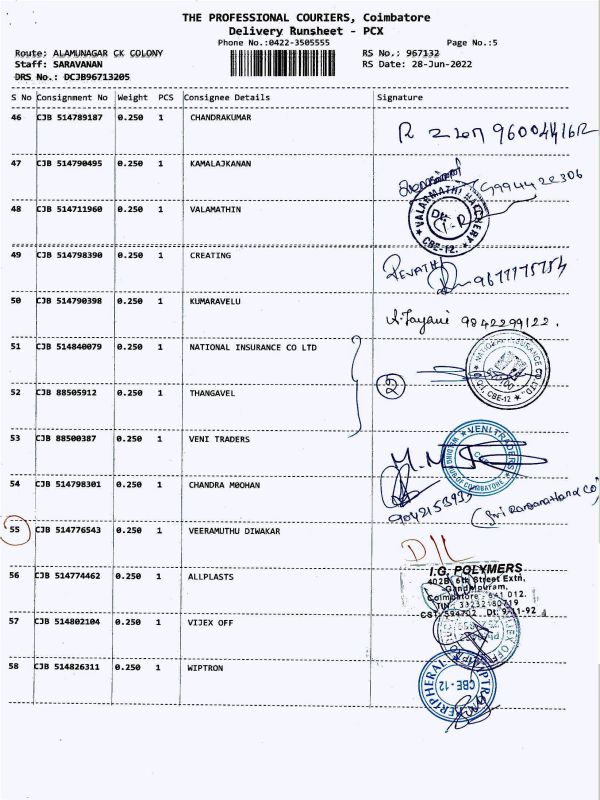 THE PROFESSIONAL COURIERS, Coimbatore
Delivery Runsheet - PCX
Phone No.:0422-3505555 Page No.:5
Route: ALAMUNAGAR CK COLONY RS No.: 967132
Staff: SARAVANAN RS Date: 28-Jun-2022
DRS No.: DCJB96713205
S No Consignment No Weight PCS Consignee Details Signature
46 CJB 514789187 0.250 1 CHANDRAKUMAR
47 CJB 514790495 0.250 1 KAMALAJKANAN
9994422306
48 CJB 514711960 0.250 1 VALAMATHIN
VALARMATHI HATCHERY
CBE-12.
49 CJB 514798390 0.250 1 CREATING
REVATHI
9677775754
50 CJB 514790398 0.250 1 KUMARAVELU
Jayani 9842299122.
51 CJB 514840079 0.250 1 NATIONAL INSURANCE CO LTD
2
NATIONAL INSURANCE CO. LTD.
CBE-12
52 CJB 88505912 0.250 1 THANGAVEL
53 CJB 88500387 0.250 1 VENI TRADERS
VENI TRADERS
54 CJB 514798301 0.250 1 CHANDRA MOOHAN
55 CJB 514776543 0.250 1 VEERAMUTHU DIWAKAR
D/L
56 CJB 514774462 0.250 1 ALLPLASTS
I.G. POLYMERS
402B, 6th Street Extn,
Gandhipuram,
Coimbatore - 641 012.
TIN : 33232180719
CST: 594702 Dt: 9-11-92
57 CJB 514802104 0.250 1 VIJEX OFF
58 CJB 514826311 0.250 1 WIPTRON
PERIPHERALS
CBE - 12